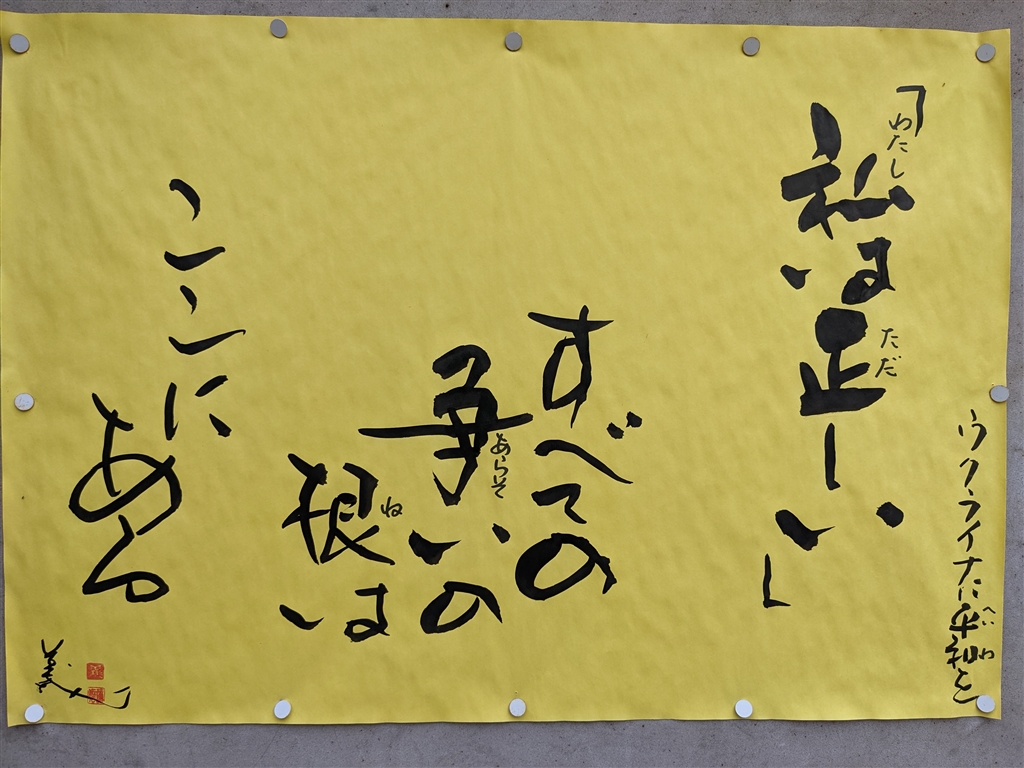 ウクライナに平和を
へいわ
「私は正しい」
わたし
ただ
すべての
争いの
あらそ
根は
ね
ここに
ある